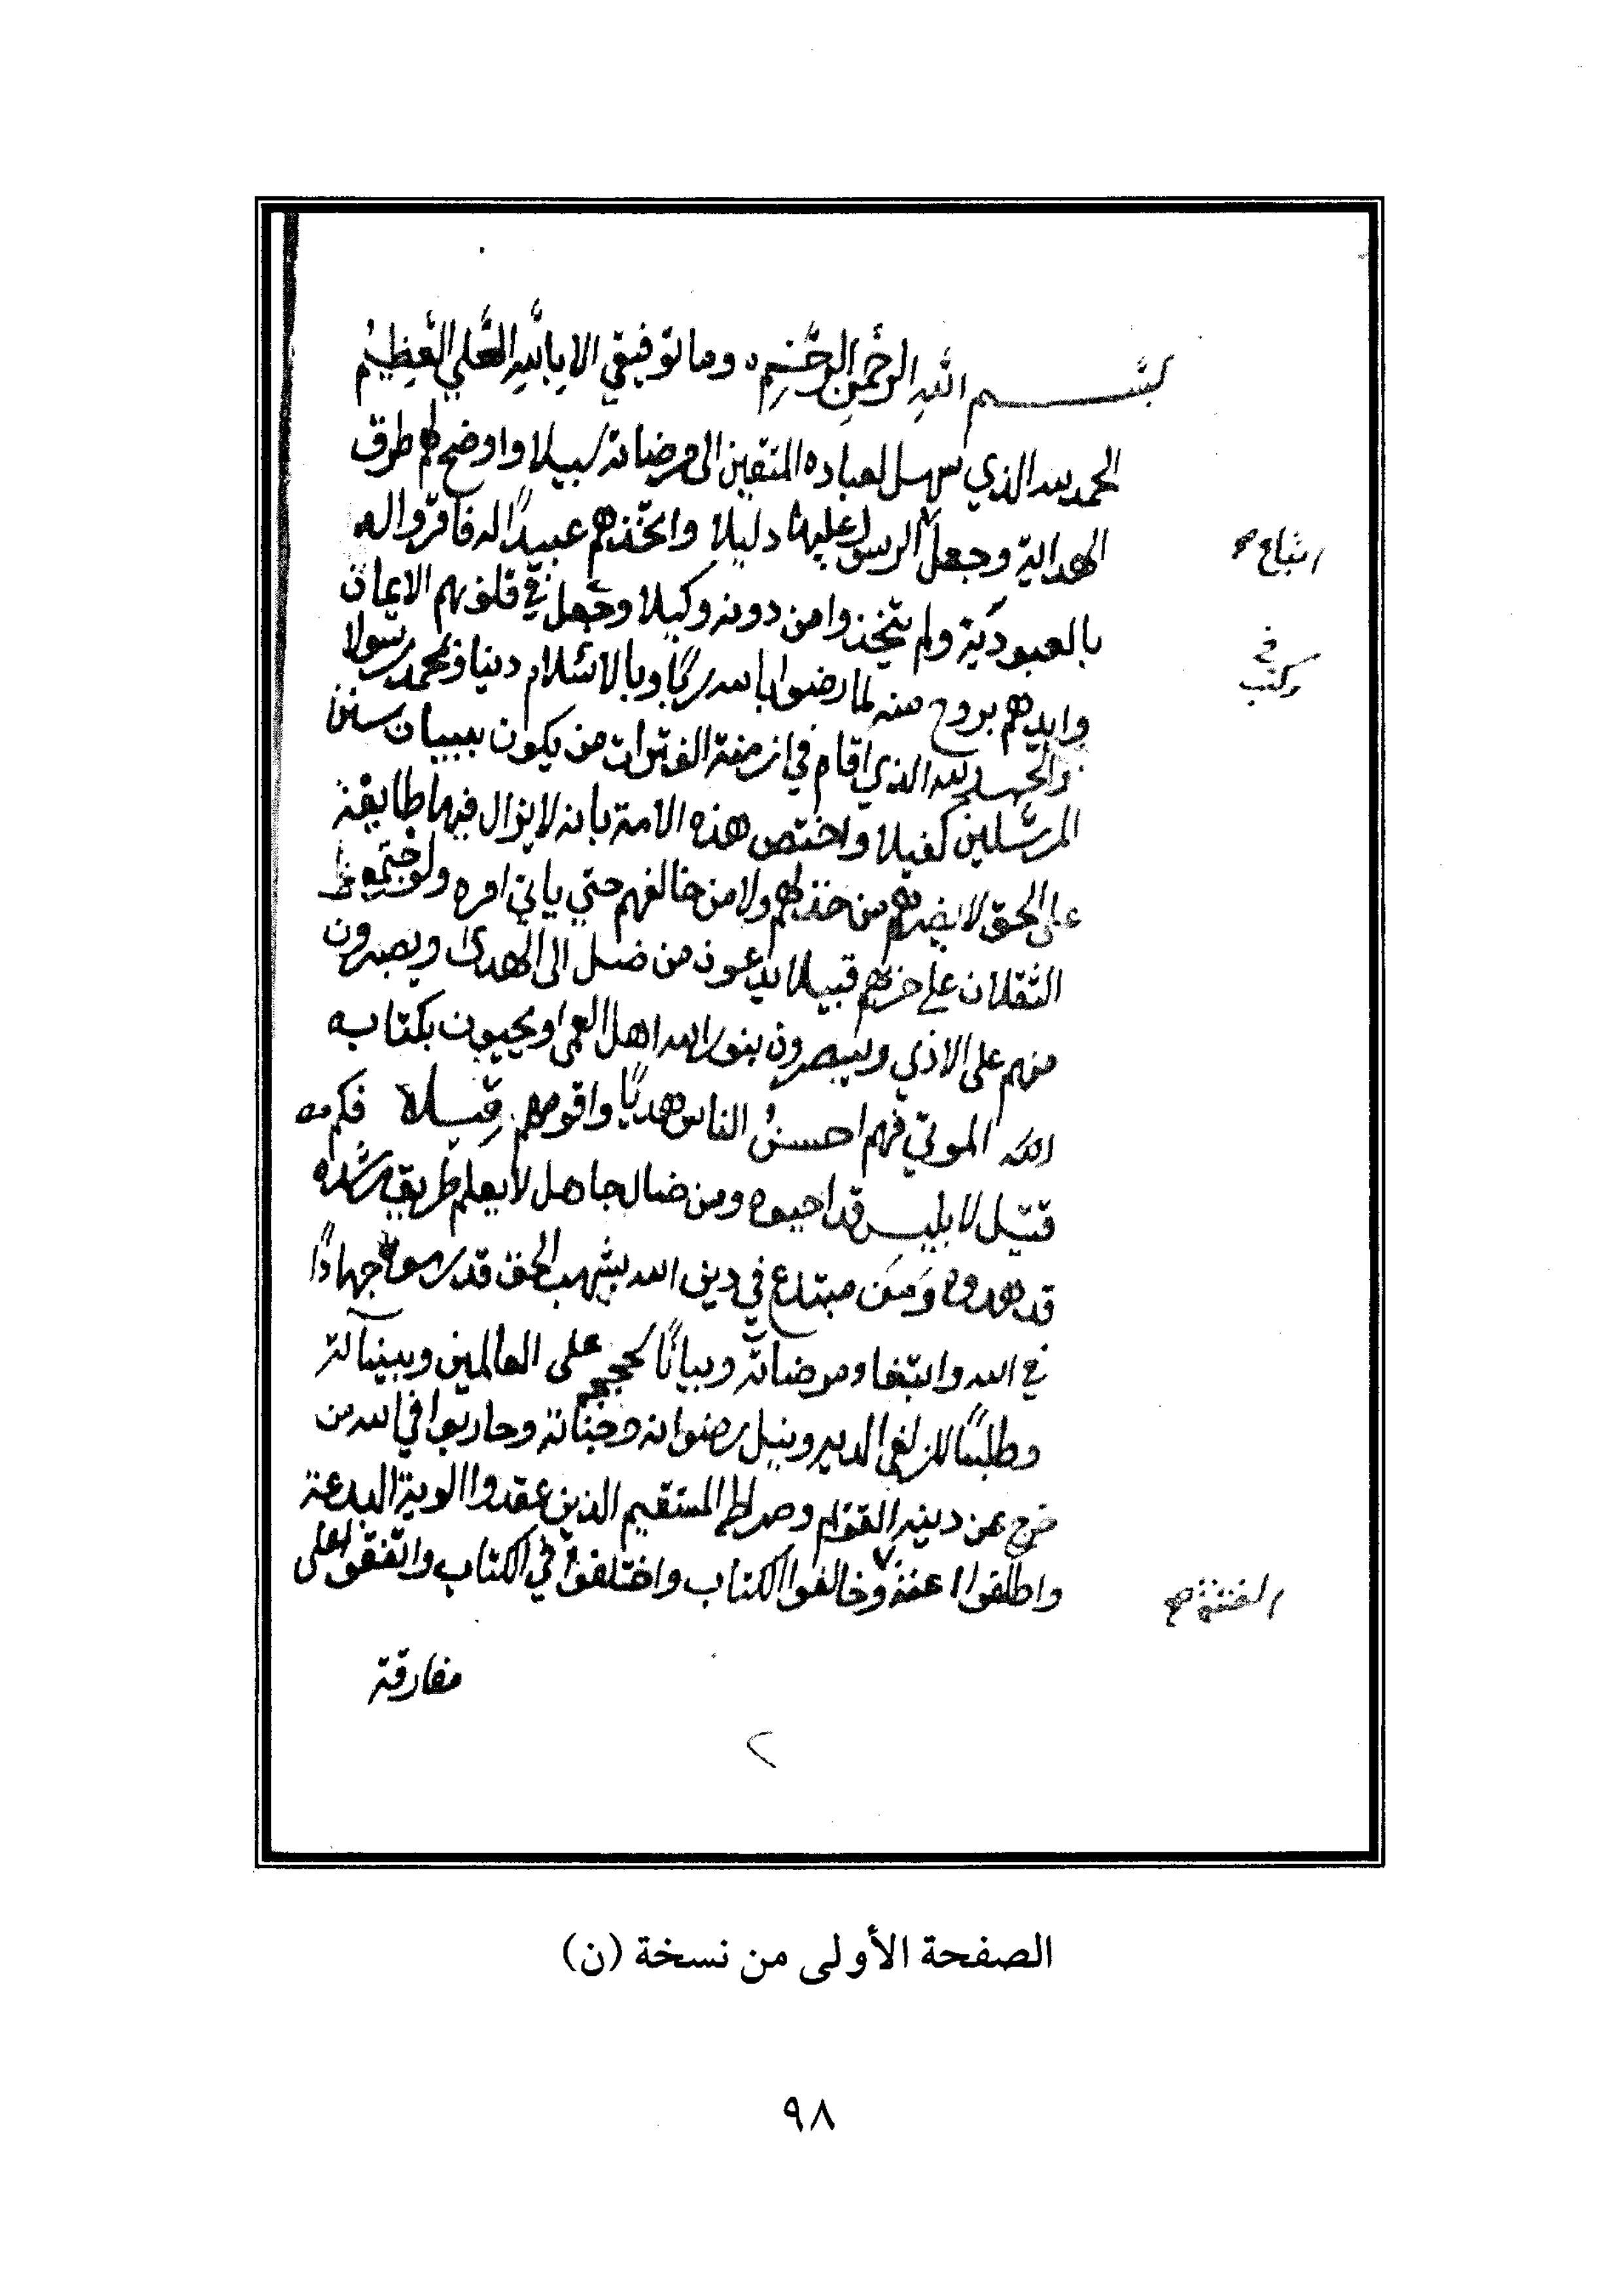 بسم الله الرحمن الرحيم ٥ وما توفيقي الا بالله العلي العظيم
الحمد لله الذي سهل لعباده المتقين الى مرضاته سبيلا واوضح لهم طرق
الهداية وجعل الرسول عليها دليلا واتخذهم عبيدًا له فاقروا له
اتباع صح
بالعبودية ولم يتخذوا من دونه وكيلا وجعل في قلوبهم الايمان
كتب في
وايدهم بروح منه لما رضوا بالله ربًا وبالاسلام دينا وبمحمد رسولا
والحمد لله الذي اقام في ازمنة الفترات من يكون ببيان سنن
المرسلين كفيلا واختص هذه الامة بانه لا يزال فيها طايفة
على الحق لا يضرهم من خذلهم ولا من خالفهم حتي ياتي امره ولو اجتمع
الثقلان على حربهم قبيلا يدعون من ضل الى الهدى ويصبرون
منهم على الاذي ويبصرون بنور الله اهل العمى ويحيون بكتابه
الله الموتي فهم احسن الناس هديًا واقومهم قيلا فكم من
قتيل لابليس قد احيوه ومن ضال جاهل لا يعلم طريق رشده
قد هدوه ومن مبتدع في دين الله بشهب الحق قد رموه جهادًا
في الله وابتغاء مرضاته وبيانًا لحججه على العالمين وبيناته
وطلبًا للزلفى لديه ونيل رضوانه وجناته وحاربوا في الله من
خرج عن دينه القويم وصراطه المستقيم الذين عقدوا الوية البدعة
واطلقوا اعنة وخالفوا الكتاب واختلفوا في الكتاب واتفقوا على
الفتنة صح
مفارقة
٢
الصفحة الأولى من نسخة (ن)
٩٨